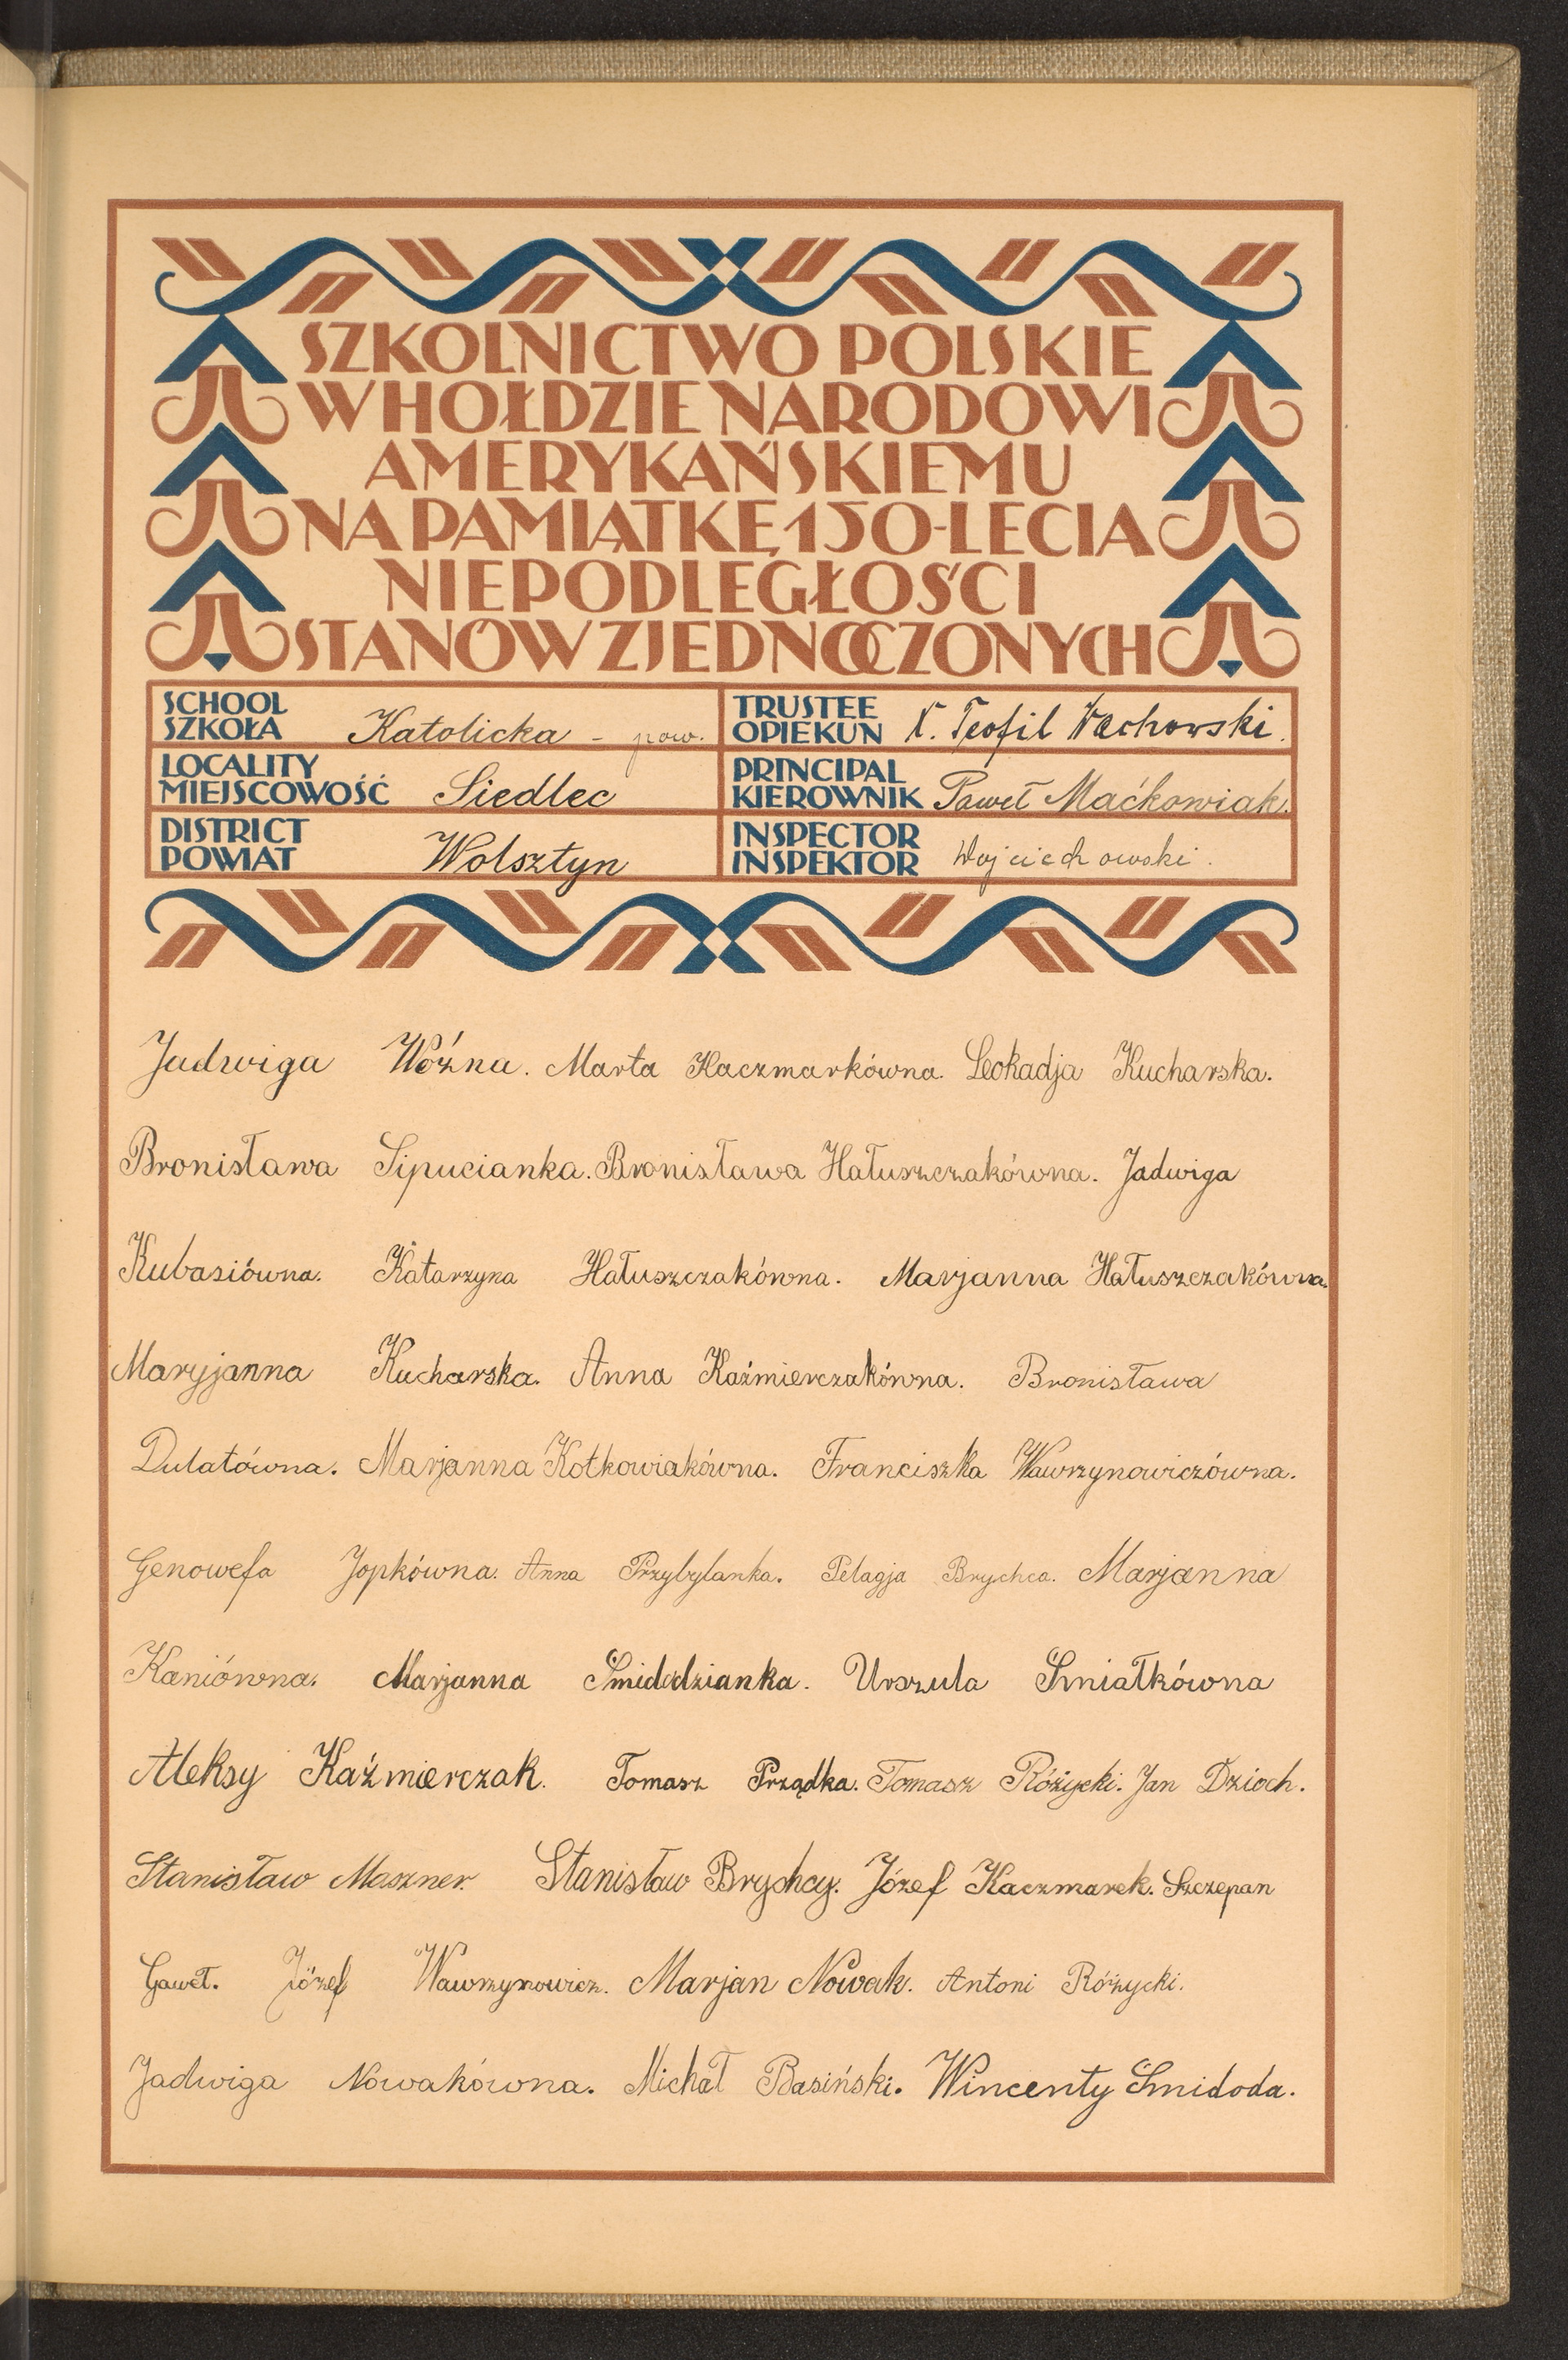 SZKOLNICTWO POLSKIE
W HOŁDZIE NARODOWI
AMERYKAŃSKIEMU
NA PAMIĄTKĘ 150-LECIA
NIEPODLEGŁOŚCI
STANÓW ZJEDNOCZONYCH
SCHOOL
SZKOŁA Katolicka - pow.
TRUSTEE
OPIEKUN X. Teofil Wachowski.
LOCALITY
MIEJSCOWOŚĆ Siedlec
PRINCIPAL
KIEROWNIK Paweł Maćkowiak.
DISTRICT
POWIAT Wolsztyn
INSPECTOR
INSPEKTOR Wojciechowski.
Jadwiga Woźna. Marta Kaczmarkówna. Leokadja Kucharska.
Bronisława Sipucianka. Bronisława Hałuszczakówna. Jadwiga
Kubasiówna. Katarzyna Hałuszczakówna. Marjanna Hałuszczakówna.
Maryjanna Kucharska. Anna Kaźmierczakówna. Bronisława
Dulatówna. Marjanna Kotkowiakówna. Franciszka Wawrzynowiczówna.
Genowefa Jopkówna. Anna Przybylanka. Pelagja Brychca. Marjanna
Kaniówna. Marjanna Śmidodzianka. Urszula Śmiałkówna
Aleksy Kaźmierczak. Tomasz Prządka. Tomasz Różycki. Jan Dzioch.
Stanisław Maszner. Stanisław Brychcy. Józef Kaczmarek. Szczepan
Gaweł. Józef Wawrzynowicz. Marjan Nowak. Antoni Różycki.
Jadwiga Nowakówna. Michał Basiński. Wincenty Śmidoda.